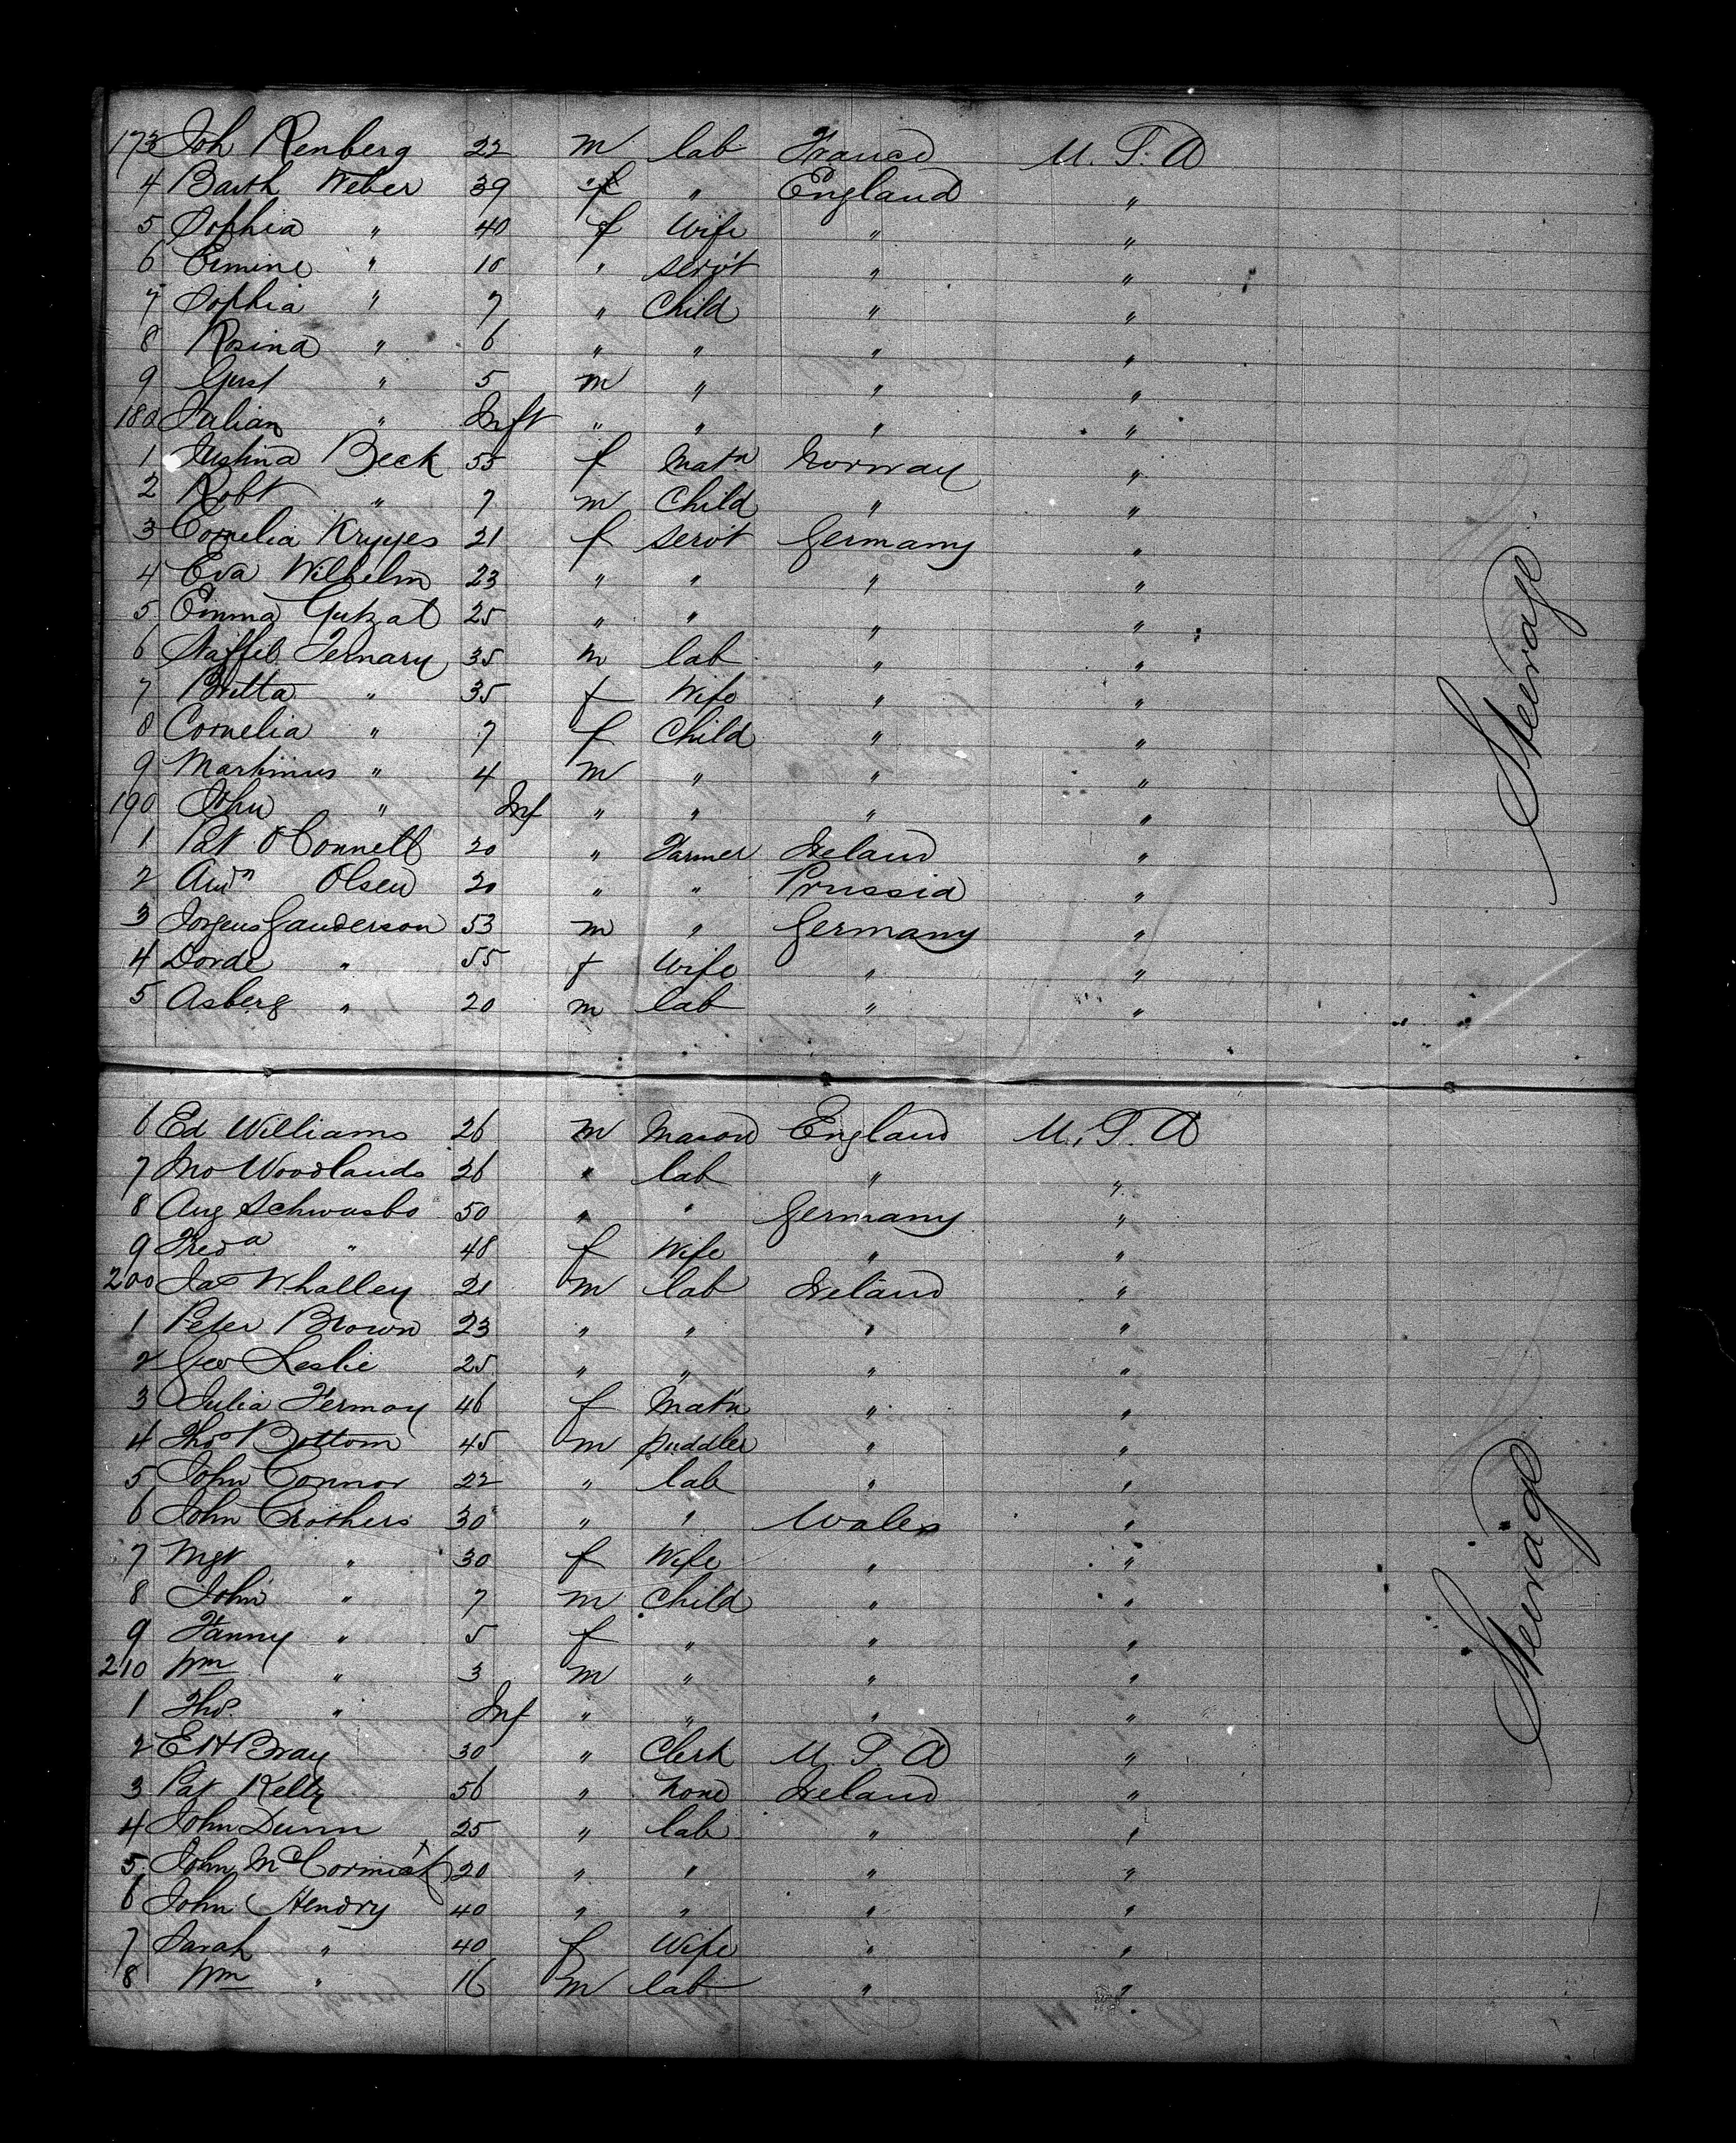 173 Joh Renberg 22 m lab France U.S.A
4 Barth Weber 39 " " England "
5 Sophia " 40 f Wife " "
6 Ermine " 10 " servt " "
7 Sophia " 7 " Child " "
8 Rosina " 6 " " " "
9 Gust " 5 m " " "
180 Julian " Inft " " " "
1 Justina Beck 55 f Matn Norway "
2 Robt " 7 m Child " "
3 Cornelia Kryyes 21 f servt Germany "
4 Eva Wilhelm 23 " " " "
5 Emma Gutzat 25 " " " "
6 Ternary 35 m lab " "
7 Britta " 35 f Wife " "
8 Cornelia " 7 f Child " "
9 Martinus " 4 m " " "
190 John " Inf " " " "
1 Pat O'Connell 20 " Farmer Ireland "
2 Andn Olsen 20 " " Prussia "
3 Jorgens Ganderson 53 m " Germany "
4 Dorde " 55 f Wife " "
5 Asberg " 20 m lab " "
Steerage
6 Ed Williams 26 m Mason England U.S.A
7 Jno Woodlands 26 " lab " "
8 Aug Schwasbo 50 " " Germany "
9 Freda " 48 f Wife " "
200 Jas Whalley 21 m lab Ireland "
1 Peter Brown 23 " " " "
2 Geo Leslie 25 " " " "
3 Julia Fermoy 46 f Matn " "
4 Thos Bottom 45 m puddler " "
5 John Connor 22 " lab " "
6 John Crothers 30 " " Wales "
7 Mgt " 30 f Wife " "
8 John " 7 m Child " "
9 Fanny " 5 f " " "
210 Wm " 3 m " " "
1 Thos. " Inf " " " "
2 E H Bray 30 " Clerk U.S.A "
3 Pat Kelly 56 " None Ireland "
4 John Dunn 25 " lab " "
5 John McCormick 20 " " " "
6 John Hendry 40 " " " "
7 Sarah " 40 f Wife " "
8 Wm " 16 m lab " "
Steerage